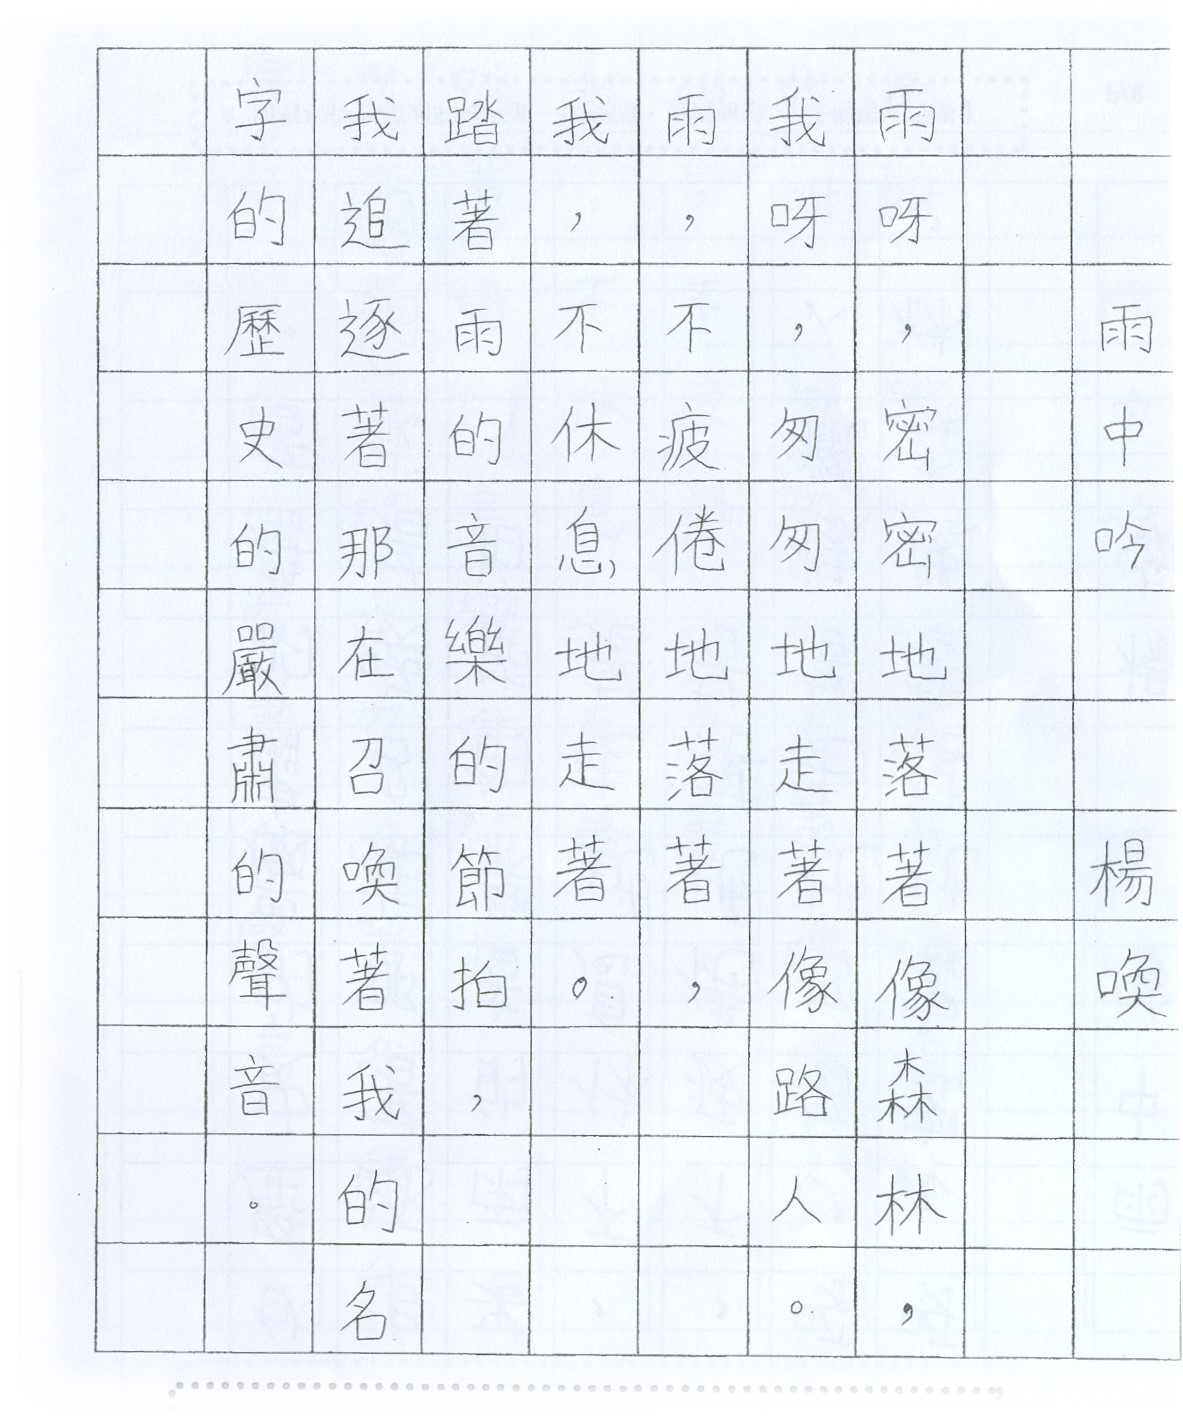 雨中吟 楊喚
雨呀，密密地落著像森林，
我呀，匆匆地走著像路人。
雨，不疲倦地落著，
我，不休息地走著。
踏著雨的音樂的節拍，
我追逐著那在召喚著我的名
字的歷史的嚴肅的聲音。